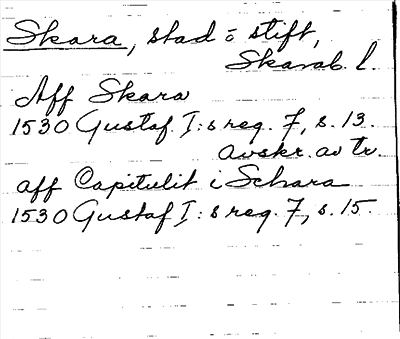 Skara, stad o stift,
Skarab. l.
Aff Skara
1530 Gustaf I:s reg. 7, s. 13.
Avskr. av tr.
aff Capitulit i Schara
1530 Gustaf I:s reg. 7, s. 15.